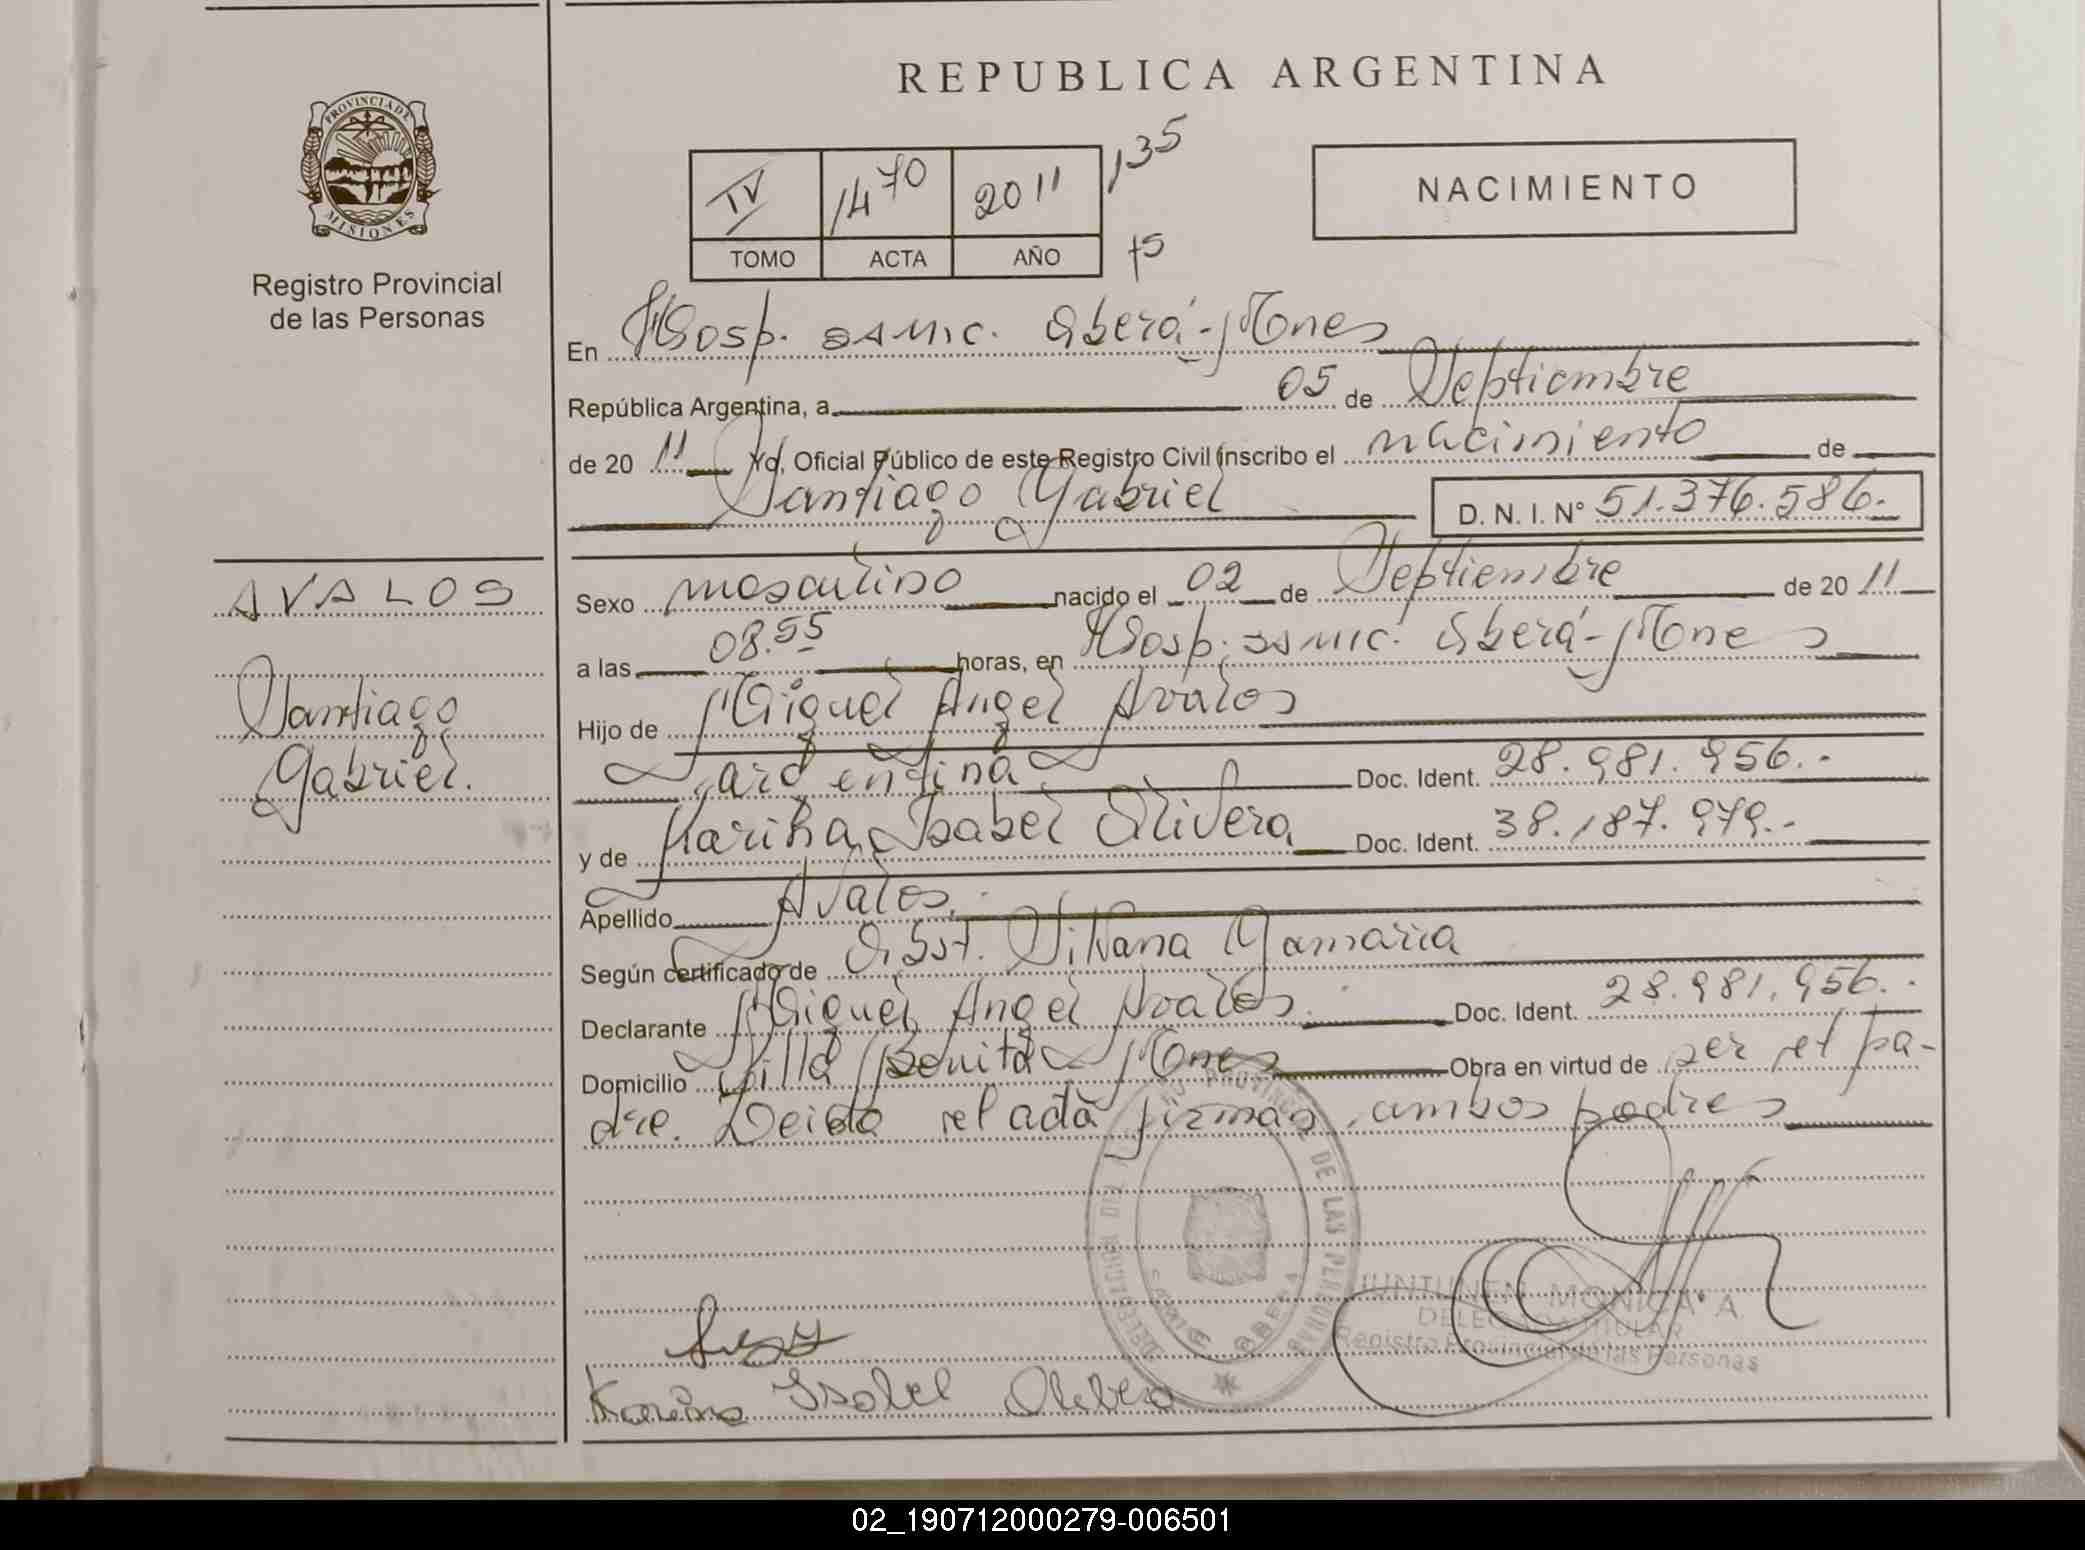 REPUBLICA ARGENTINA
PROVINCIA DE
MISIONES
Registro Provincial
de las Personas
IV 1470 2011 135
TOMO ACTA AÑO 75
NACIMIENTO
En Hosp. SAMIC. Oberá-Mnes
República Argentina, a 05 de Septiembre
de 20 11 Yo, Oficial Público de este Registro Civil inscribo el nacimiento de
Santiago Gabriel D. N. I. N° 51.376.586.-
AVALOS
Santiago
Gabriel.
Sexo masculino nacido el 02 de Septiembre de 20 11
a las 08.55 horas, en Hosp. SAMIC. Oberá-Mnes
Hijo de Miguel Angel Avalos
argentina Doc. Ident. 28.981.956.-
y de Karina Isabel Olivera Doc. Ident. 38.187.979.-
Apellido Avalos.
Según certificado de Obst. Silvana Gamarra
Declarante Miguel Angel Avalos. Doc. Ident. 28.981.956.-
Domicilio Villa Bonita Mnes Obra en virtud de ser el pa-
dre. Leida el acta firman ambos padres
DELEGACION DEL REGISTRO PROVINCIAL DE LAS PERSONAS
OBERA
JUNTUNEN MONICA A.
DELEGADA TITULAR
Registro Provincial de las Personas
Karina Isabel Olivera
02_190712000279-006501